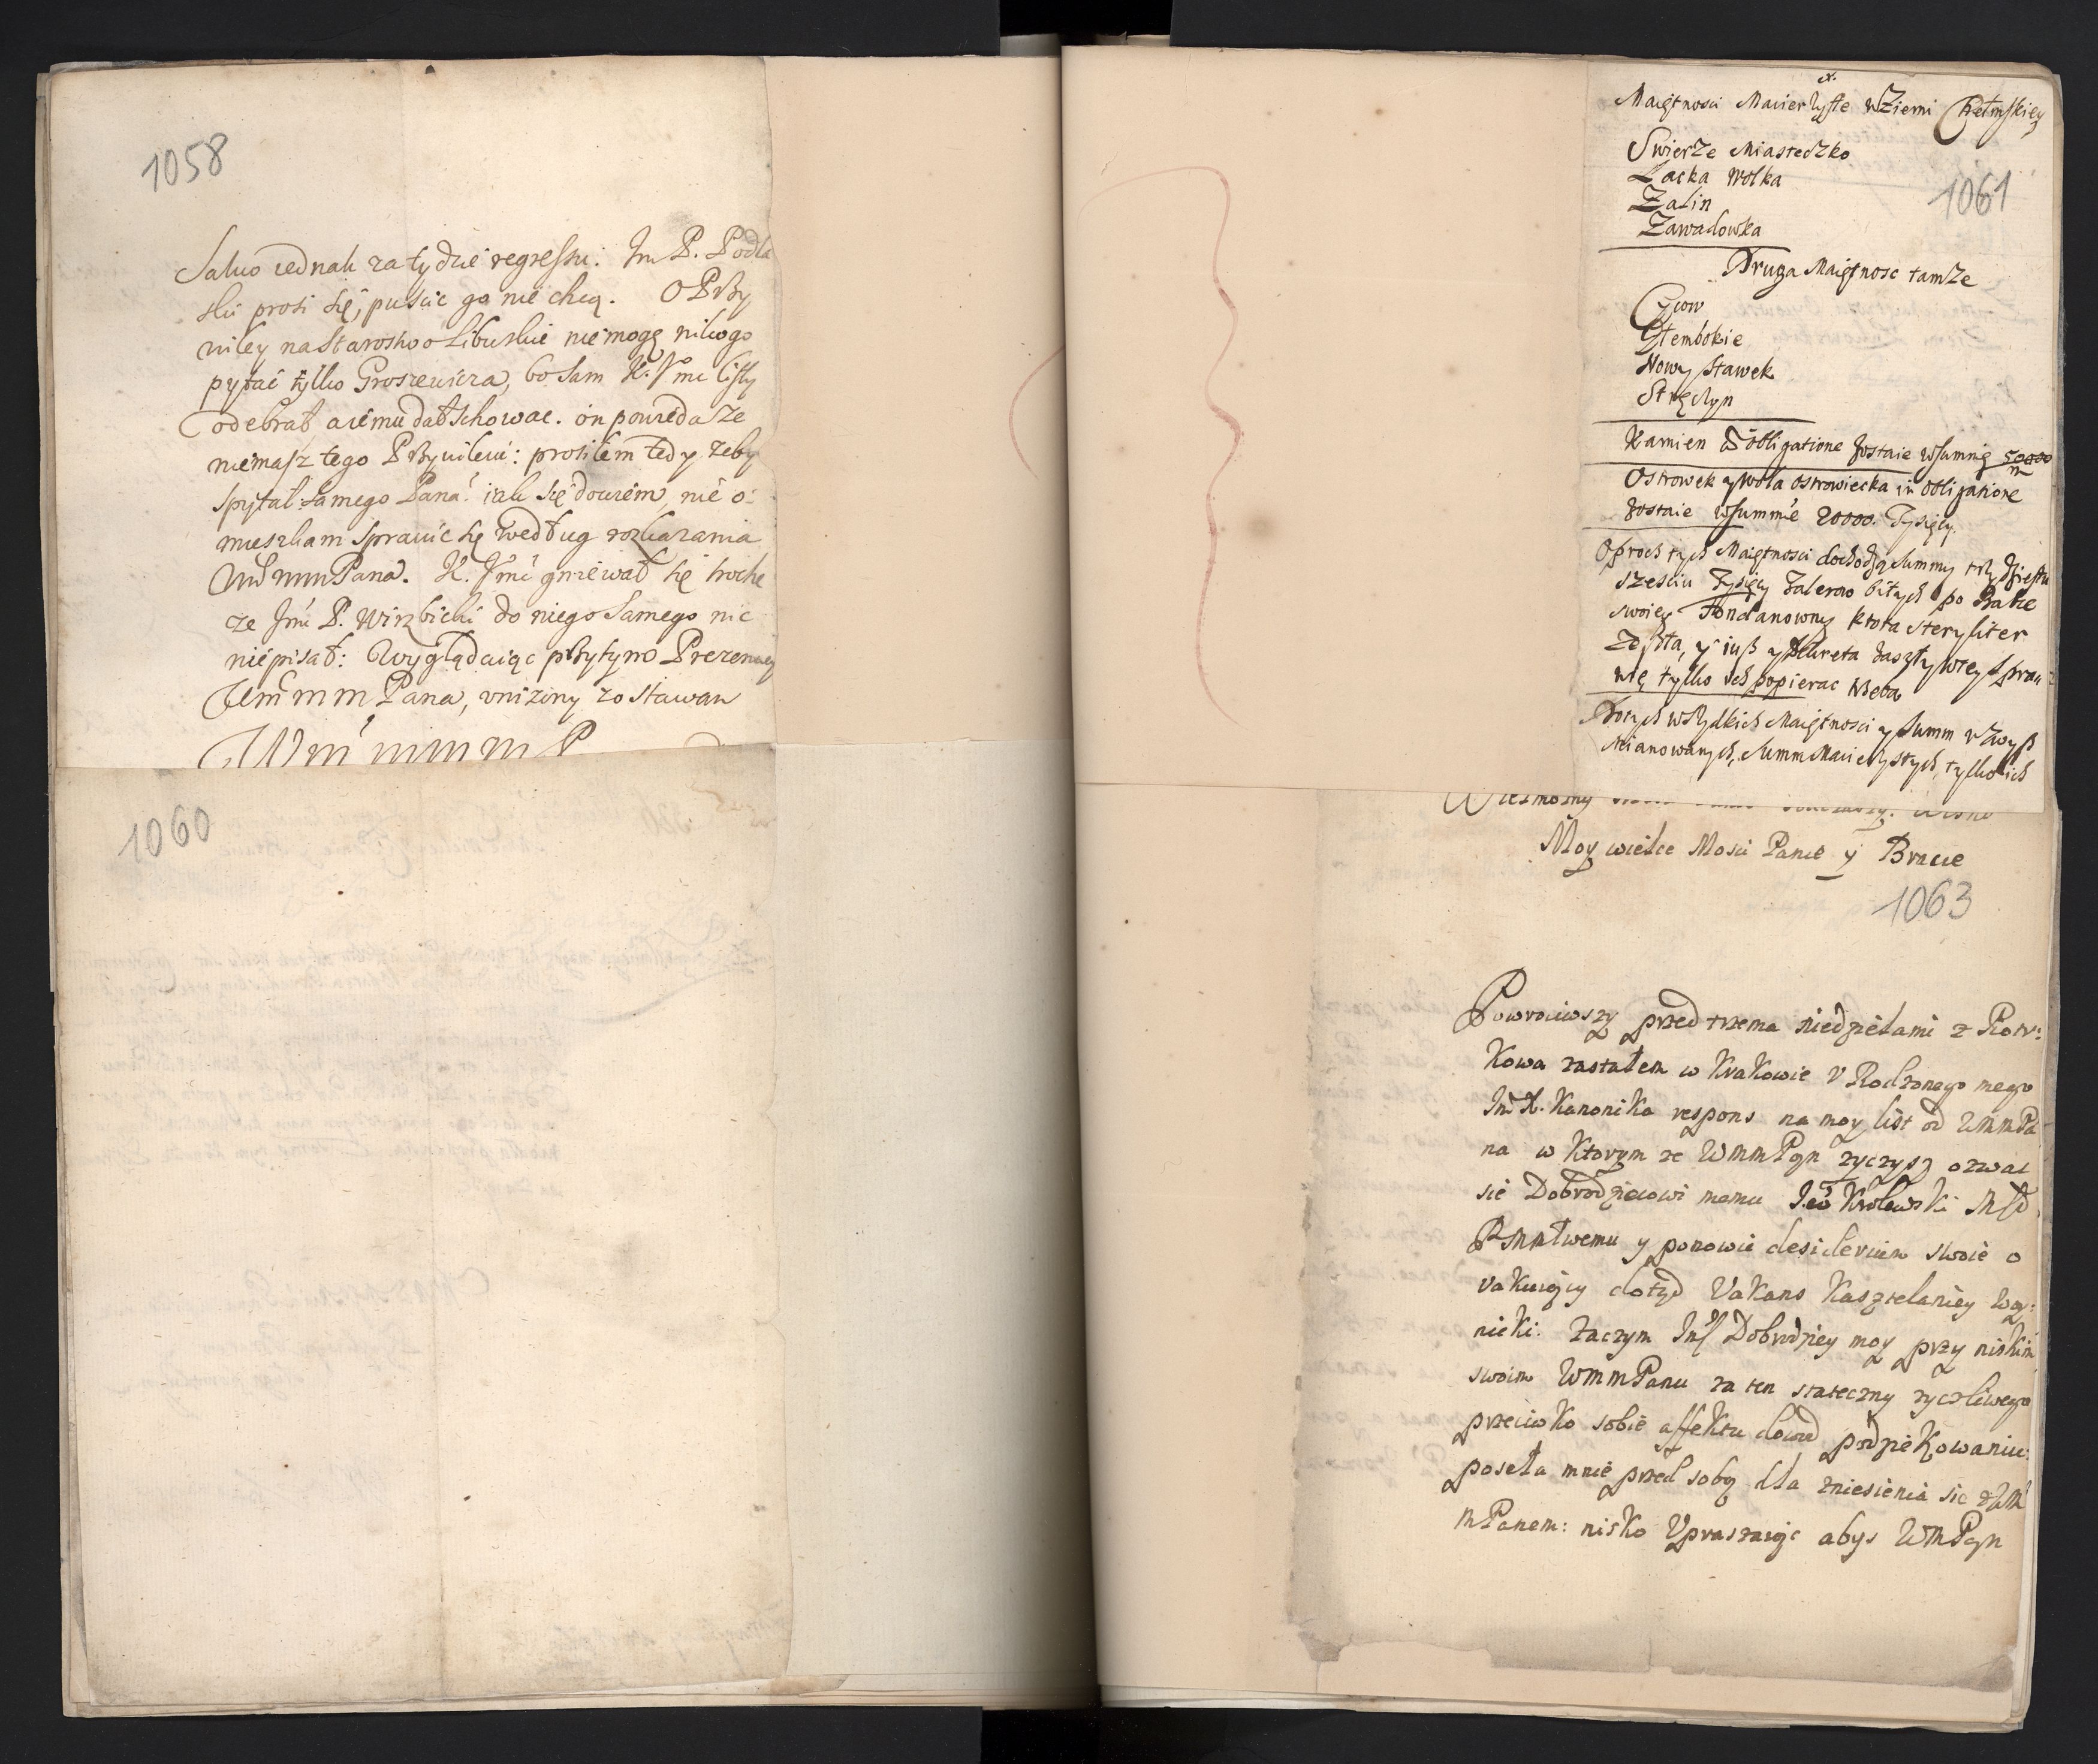 1058
Salvo iednak za tydzie regressu. Im P. Podla
ski prosi się, puścic go nie chcą. O Przy
niley na Starostwo Libuskie nie mogę nikogo
pytać tylko Groszewicza, bo sam K. Jmc listy
odebrał, a iemu dał schowac. on powieda ze
niemasz tego Przywileiu: prosiłem tedy zeby
spytał samego Pana: iak się dowiem, nie o:
mieszkam sprawić się według rozkazania
Wm mm Pana. K. Jmć gniewał się troche
ze Jmć P. Wirzbicki do niego samego nic
nie pisał: Wyglądaiąc przytym Prezencyey
Wm m m Pana, unizony zostawam
Wm mmm P
1060
Maiętnosci Macierzyste w Ziemi Chełmskiey
Swierze Miasteczko
Lacka Wolka
Zalin
Zawadowka
1061
Druga Maiętnosc tamze
Czuow
Głembokie
Nowy Stawek
Stręczyn
Kamien in obligatione zostaie w summię 50000
Ostrowek y Wola Ostrowiecka in obligatione
zostaie w summie 20000. Tysięcy.
Oproch tych Maiętnosci dochodzą summy trzydziestu
szesciu Tysięcy Talerow bitych po Babce
swoiey ktora steryliter
zeszła, y iusz dekreta zaszły w tey spra
wię tylko ich popierac trzeba
Do tych wszytkich Maiętnosci y summ zwysz
mianowanych, summ Macierzystych, tylko ich
Moy wielce Mosci Panie y Bracie
1063
Powrociwszy przed trzema niedzielami z Piotr:
kowa zastałem w Krakowie U Rodzonego mego
Jm X. Kanonika respons na moy list od WmmPa
na w ktorym ze WmmPan zyczysz ozwac
sie Dobrodzieiowi memu Krolewski
y ponowic desiderium swoie o
vakuiący dotąd Vakans Kasztelaniey Woy:
nicki: Zaczym Dobrodziey moy przy niskim
swoim WmmPanu za ten stateczny zyczliwego
przeciwko sobie affektu dowod podziekowaniu:
poseła mnie przed sobą dla zniesienia sie z Wm
mPanem: nisko Upraszaiąc abys WmPan